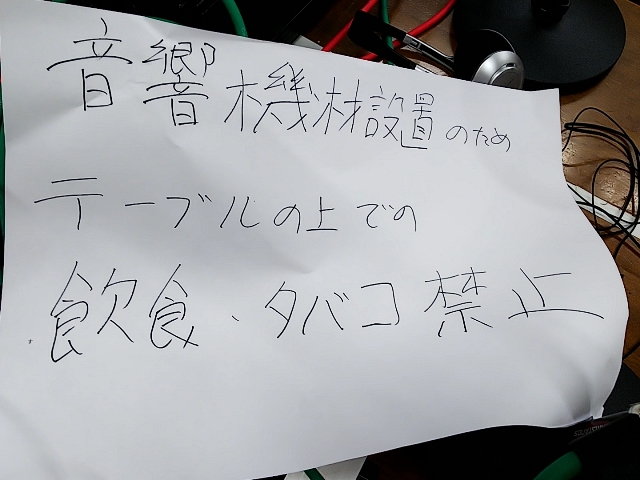 音響機材設置のため
テーブルの上での
飲食、タバコ禁止